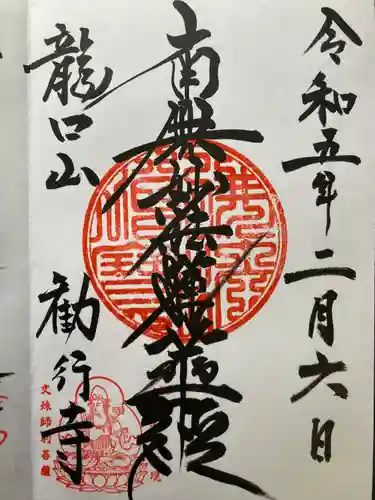 令和五年二月六日
南無妙法蓮華経
龍口山
勧行寺
文殊師利菩薩